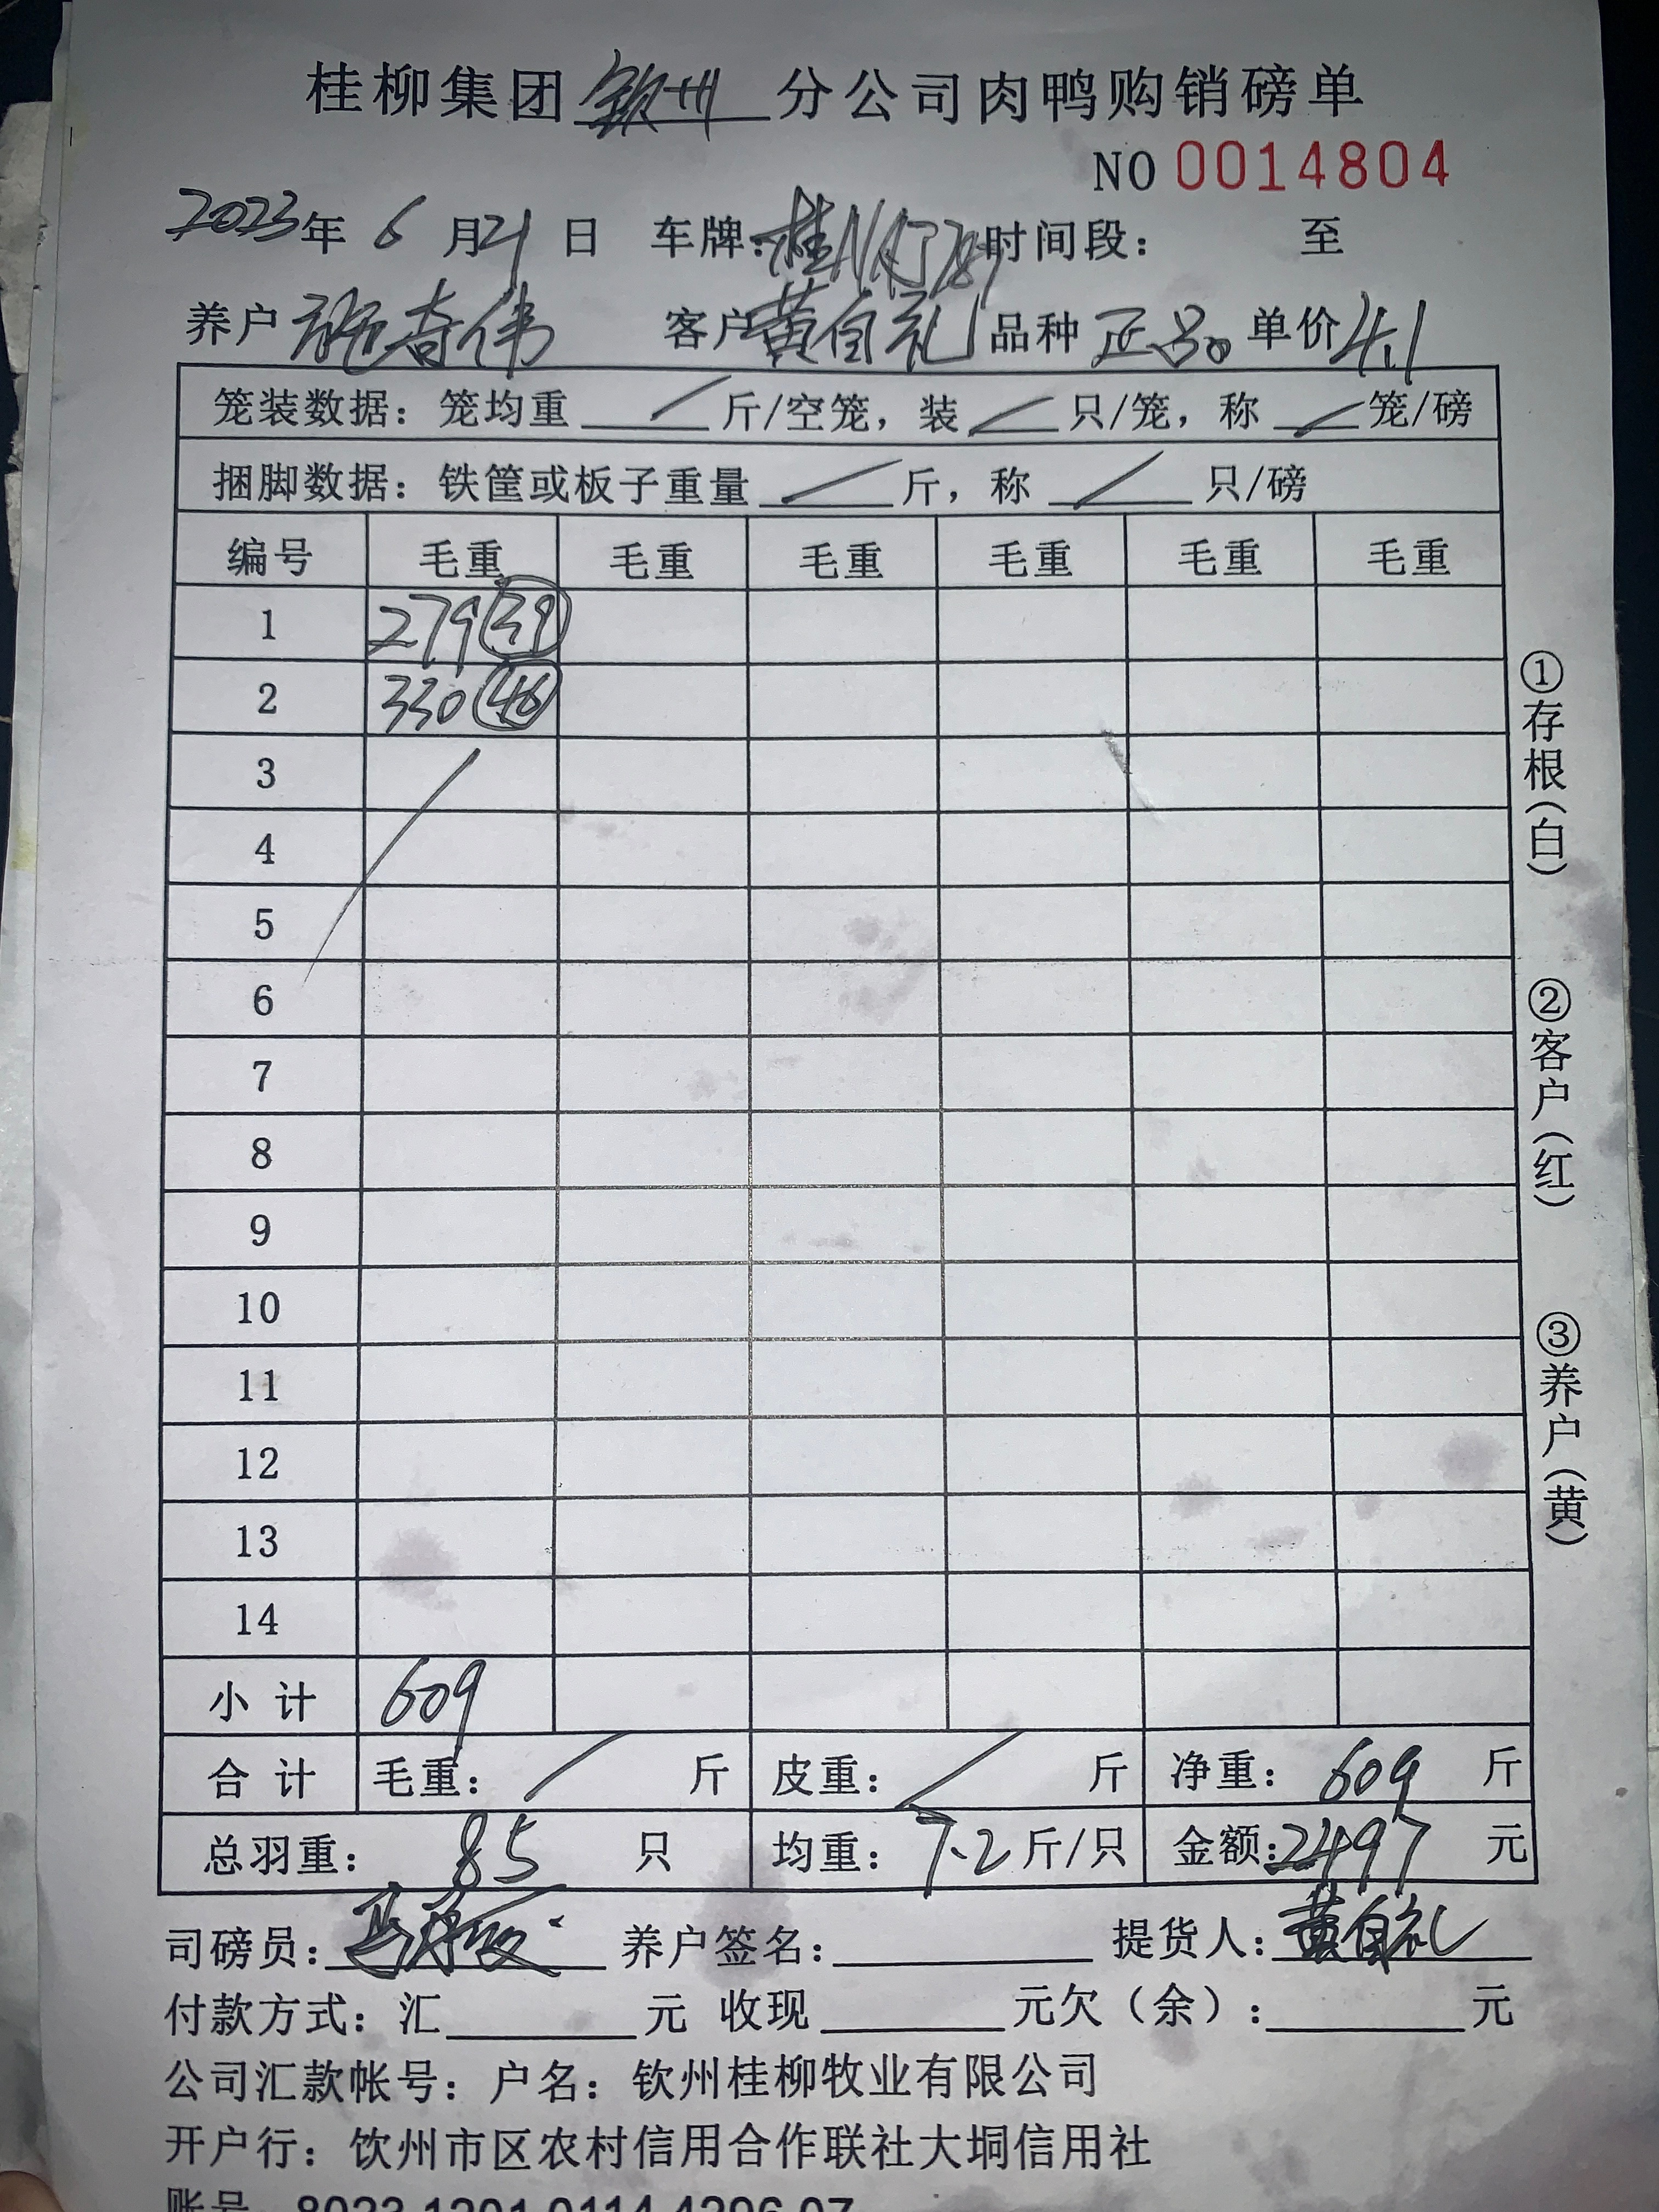 桂柳集团 钦州 分公司肉鸭购销磅单
NO 0014804
2023年 6 月21 日 车牌: 时间段: 至
养户 施奇伟 客户 黄自礼 品种 正品 单价 4.1
笼装数据: 笼均重 / 斤/空笼, 装 / 只/笼, 称 / 笼/磅
捆脚数据: 铁筐或板子重量 / 斤, 称 / 只/磅
编号 毛重 毛重 毛重 毛重 毛重 毛重
1 279 (39)
2 330 (46)
3
4
5
6
7
8
9
10
11
12
13
14
小 计 609
合 计 毛重: / 斤 皮重: / 斤 净重: 609 斤
总羽重: 85 只 均重: 7.2 斤/只 金额: 2497 元
司磅员: 养户签名: 提货人: 黄自礼
付款方式: 汇 元 收现 元欠(余): 元
公司汇款帐号: 户名: 钦州桂柳牧业有限公司
开户行: 钦州市区农村信用合作联社大垌信用社
①存根(白)
②客户(红)
③养户(黄)